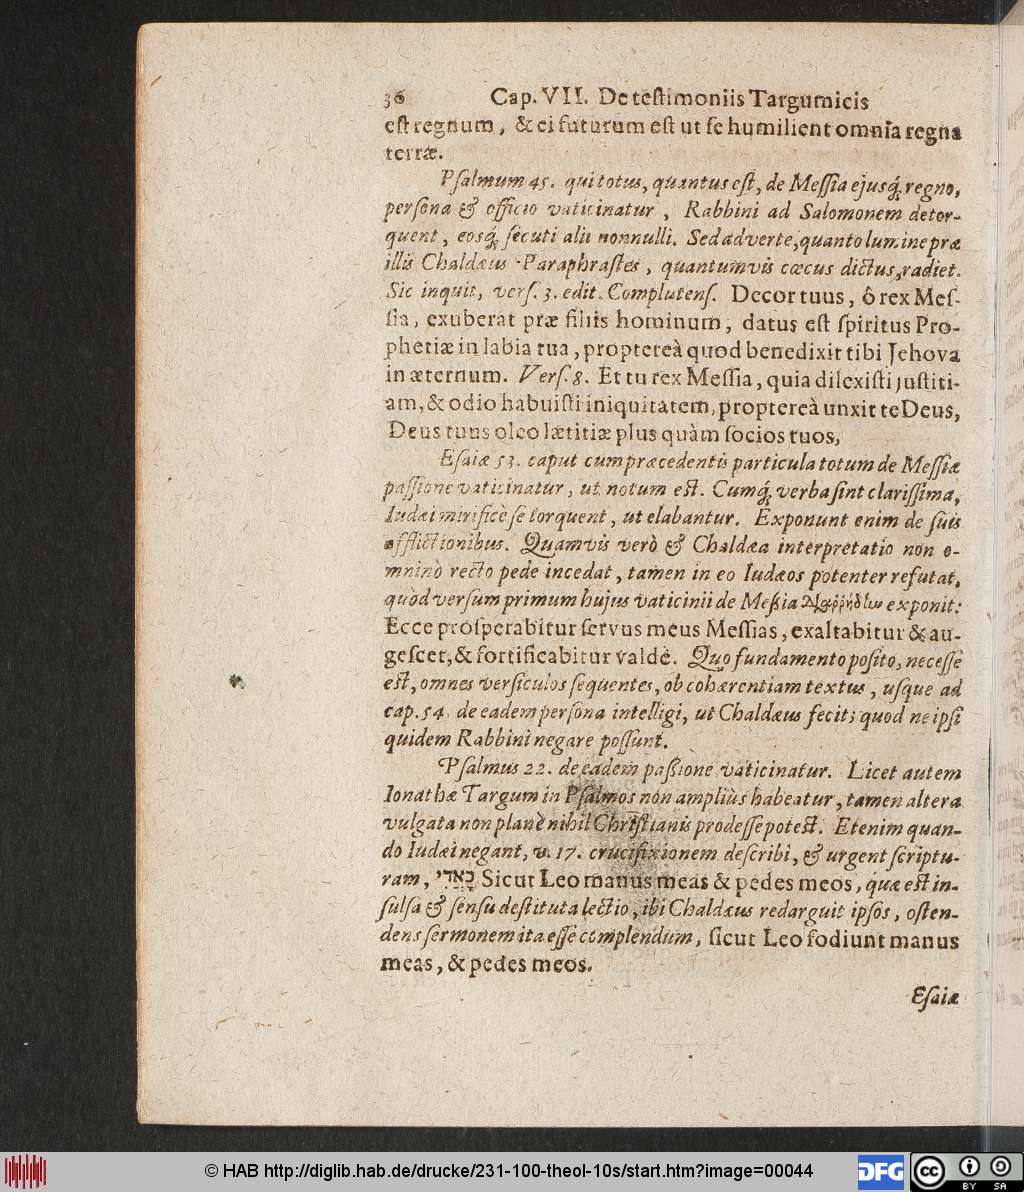 36 Cap. VII. De testimoniis Targumicis
est regnum, & ei futurum est ut se humilient omnia regna
terræ.
Psalmum 45. qui totus, quantus est, de Messia ejusq́; regno,
persona & officio vaticinatur, Rabbini ad Salomonem detor-
quent, eosq́; secuti alii nonnulli. Sed adverte, quanto lumine præ
illis Chaldæus Paraphrastes, quantumvis cœcus dictus, radiet.
Sic inquit, vers. 3. edit. Complutens. Decor tuus, ô rex Mes-
sia, exuberat præ filiis hominum, datus est spiritus Pro-
phetiæ in labia tua, proptereà quod benedixit tibi Jehova
in æternum. Vers. 8. Et tu rex Messia, quia dilexisti justiti-
am, & odio habuisti iniquitatem, proptereà unxit te Deus,
Deus tuus oleo lætitiæ plus quàm socios tuos,
Esaiæ 53. caput cum præcedentis particula totum de Messiæ
passione vaticinatur, ut notum est. Cumq́; verba sint clarissima,
Iudæi mirificè se torquent, ut elabantur. Exponunt enim de suis
afflictionibus. Quamvis verò & Chaldæa interpretatio non o-
mninò recto pede incedat, tamen in eo Iudæos potenter refutat,
quòd versum primum hujus vaticinii de Messia διαῤῥήδην exponit:
Ecce prosperabitur servus meus Messias, exaltabitur & au-
gescet, & fortificabitur valdè. Quo fundamento posito, necesse
est, omnes versiculos sequentes, ob cohærentiam textus, usque ad
cap. 54. de eadem persona intelligi, ut Chaldæus fecit; quod ne ipsi
quidem Rabbini negare possunt.
Psalmus 22. de eadem passione vaticinatur. Licet autem
Ionathæ Targum in Psalmos non ampliùs habeatur, tamen altera
vulgata non planè nihil Christianis prodesse potest. Etenim quan-
do Iudæi negant, v. 17. crucifixionem describi, & urgent scriptu-
ram, כָּאֲרִי Sicut Leo manus meas & pedes meos, quæ est in-
sulsa & sensu destituta lectio, ibi Chaldæus redarguit ipsos, osten-
dens sermonem ita esse complendum, sicut Leo fodiunt manus
meas, & pedes meos.
Esaiæ
© HAB http://diglib.hab.de/drucke/231-100-theol-10s/start.htm?image=00044
DFG
cc BY SA